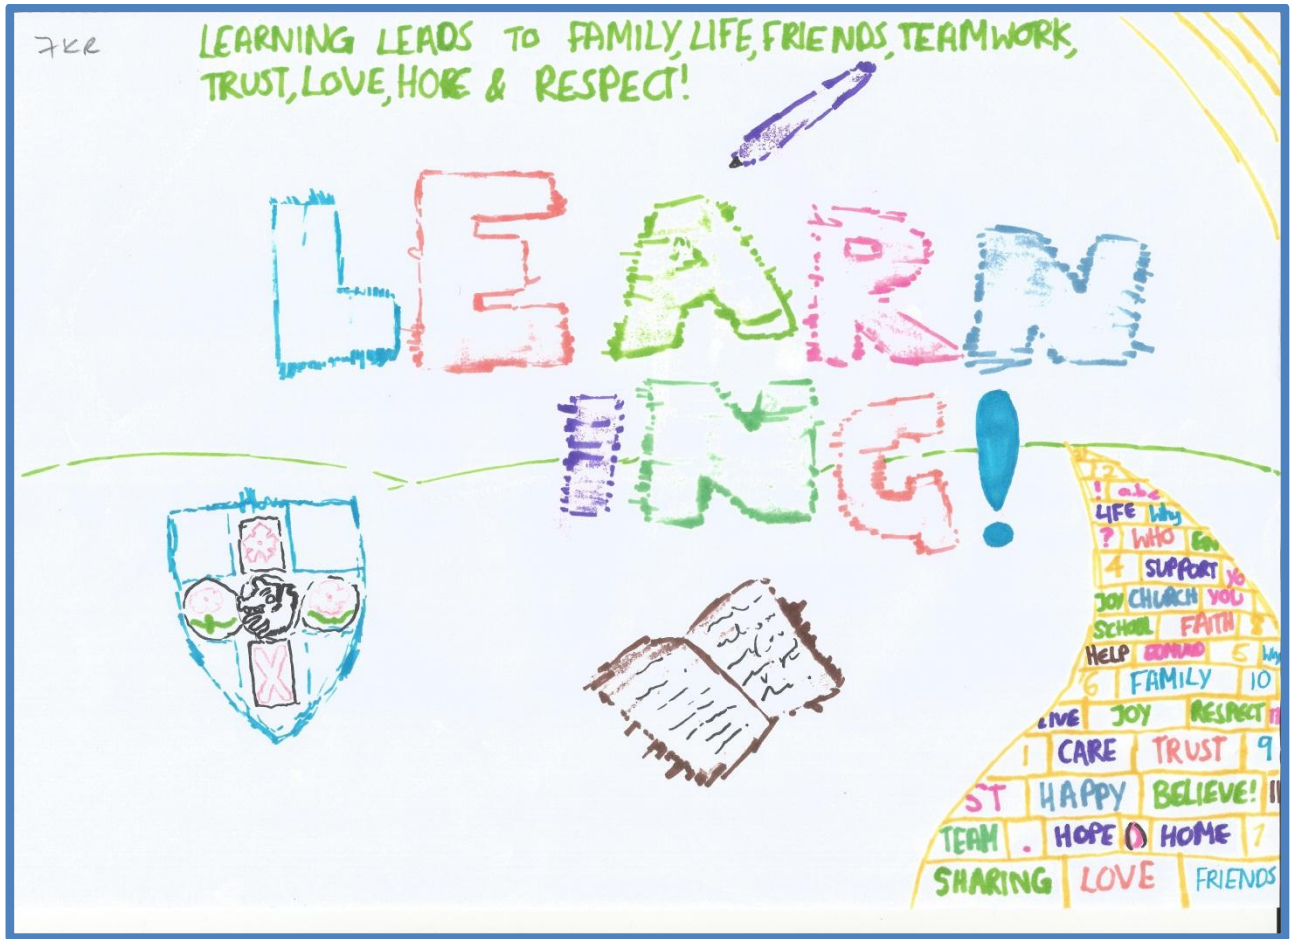 7KR
LEARNING LEADS TO FAMILY, LIFE, FRIENDS, TEAMWORK,
TRUST, LOVE, HOPE & RESPECT!
LEARN
ING!
12
! a.b.c
LIFE Why
? WHO
4 SUPPORT
JOY CHURCH YOU
SCHOOL FAITH 8
HELP EDMUND 5
6 FAMILY 10
LIVE JOY RESPECT
1 CARE TRUST 9
ST HAPPY BELIEVE!
TEAM . HOPE HOME 7
SHARING LOVE FRIENDS